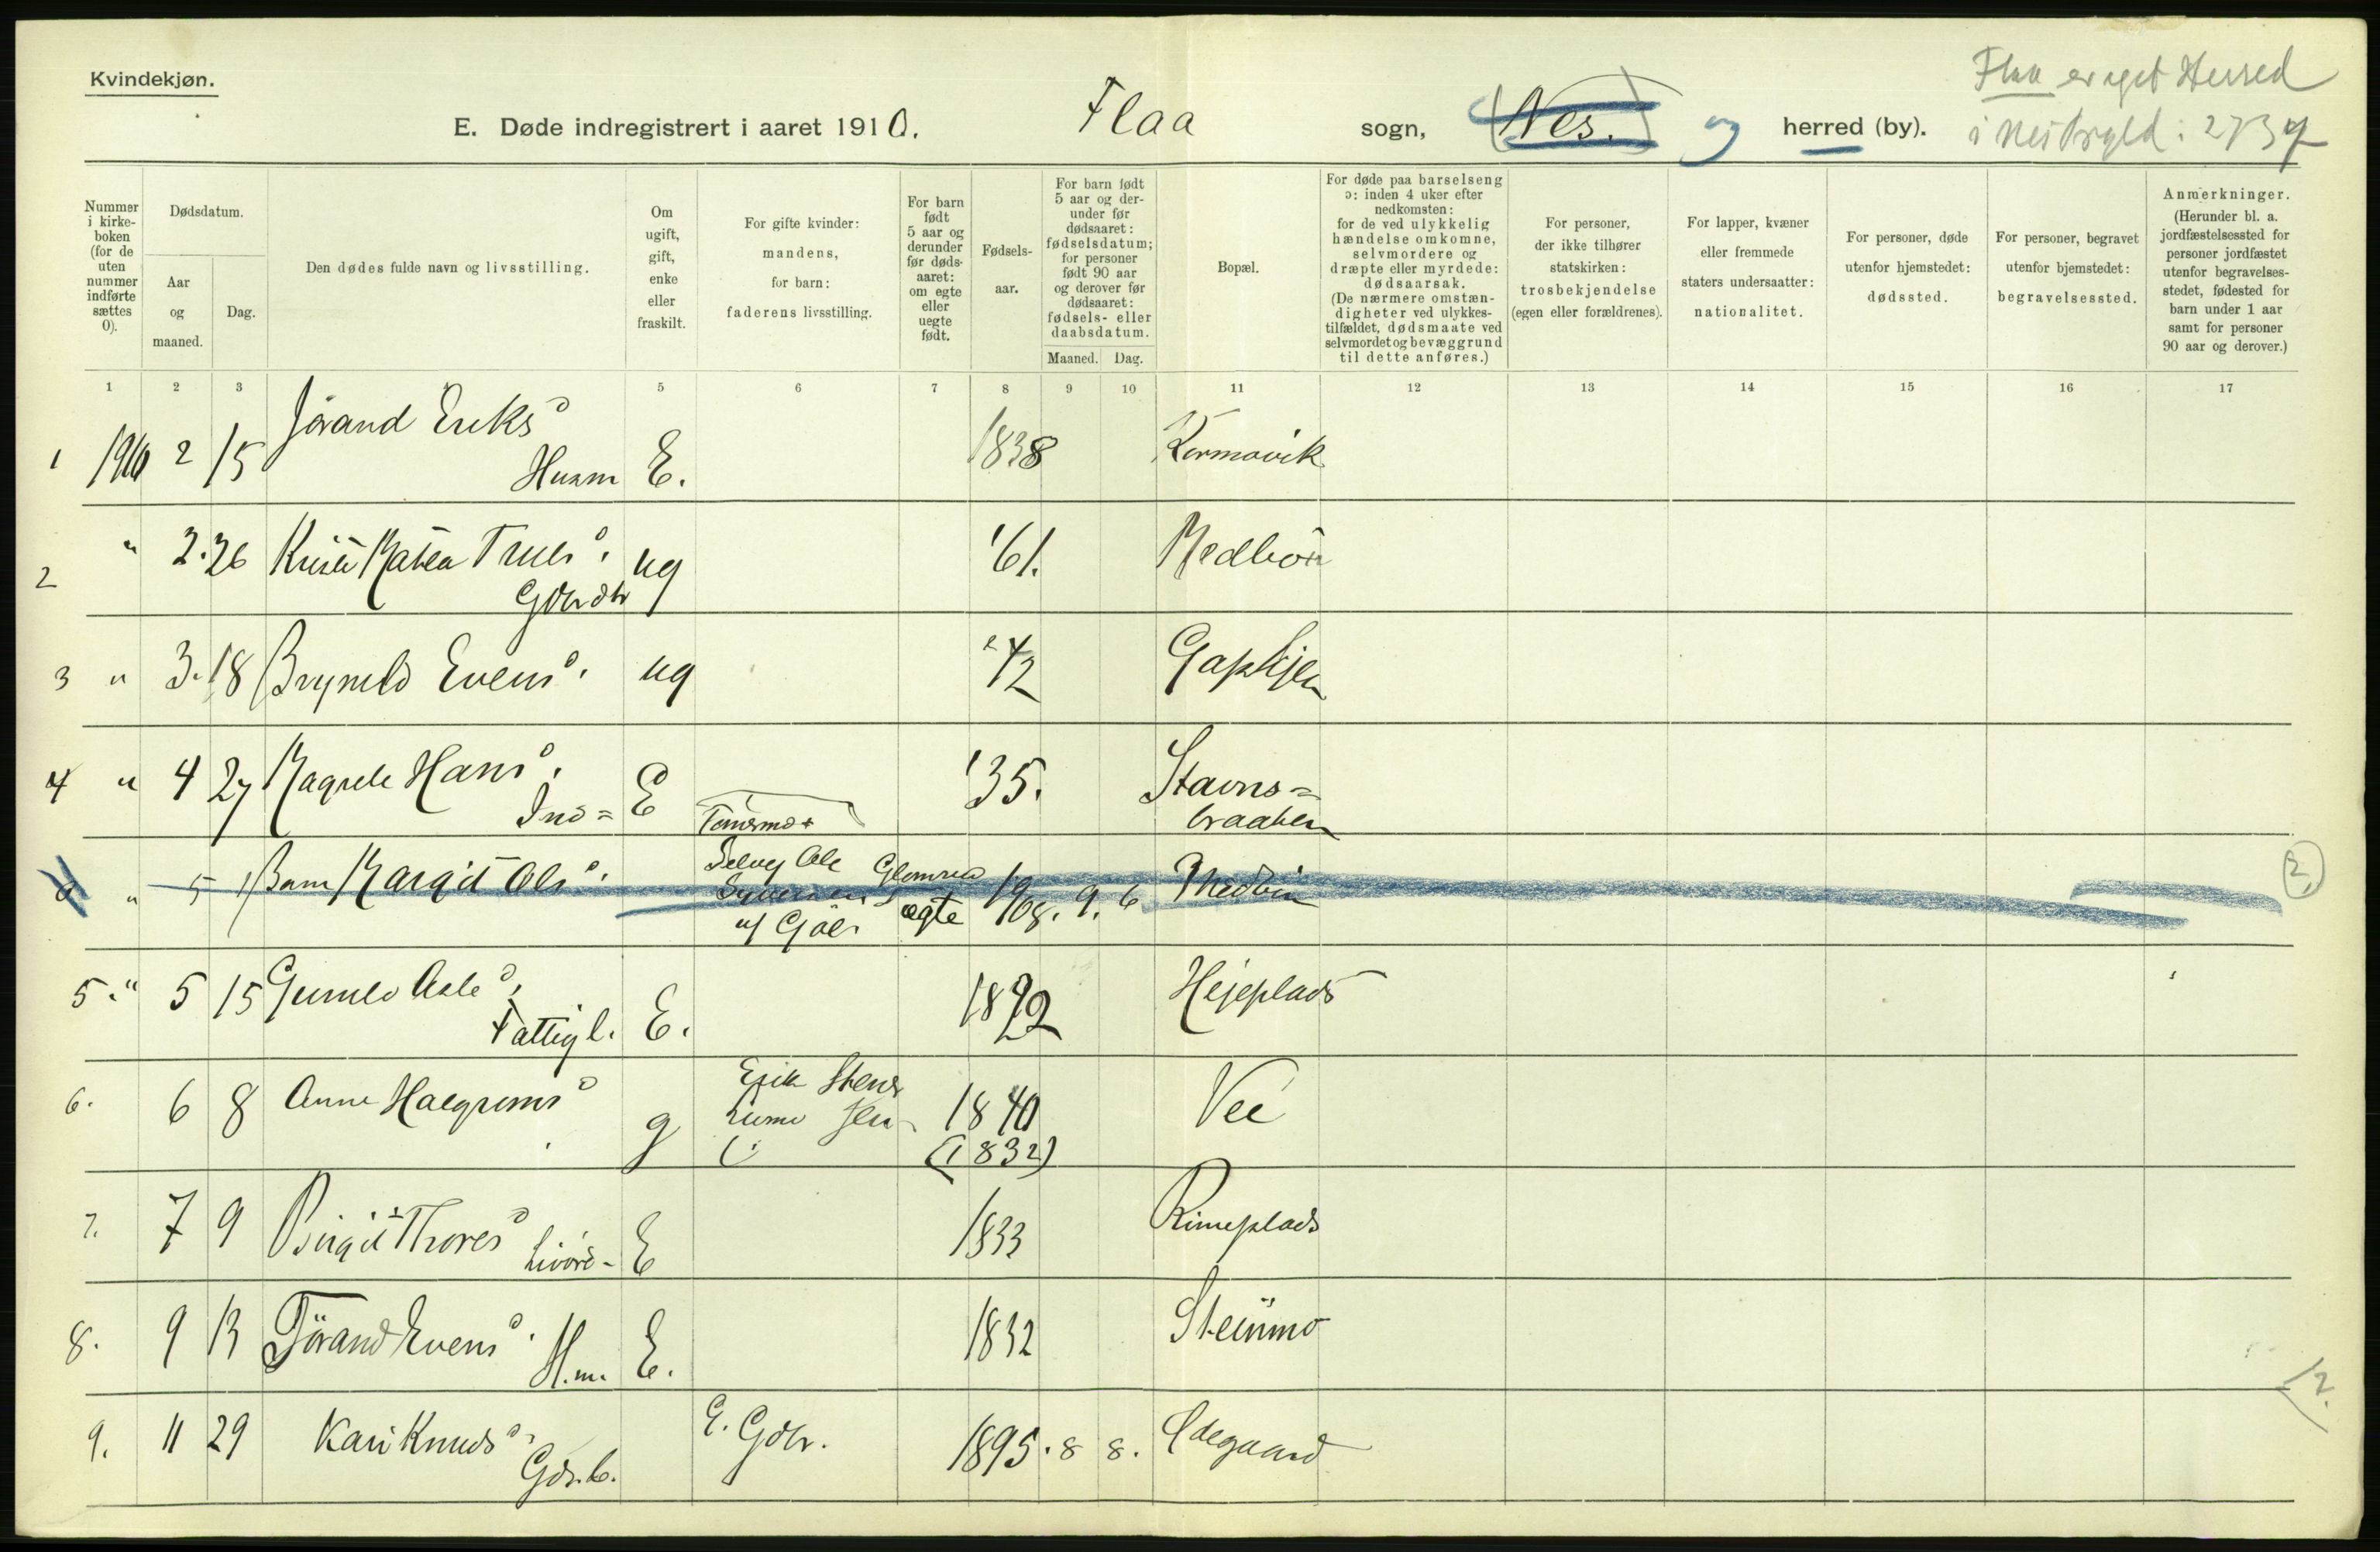 Kvindekjøn.
Flaa er eget Herred
E. Døde indregistrert i aaret 1910. Flaa sogn, (Nes.) og herred (by).
Nummer i kirke-boken (for de uten nummer indførte sættes 0).
Dødsdatum.
Aar og maaned.
Dag.
Den dødes fulde navn og livsstilling.
Om ugift, gift, enke eller fraskilt.
For gifte kvinder: mandens, for barn: faderens livsstilling.
For barn født 5 aar og derunder før døds-aaret: om egte eller uegte født.
Fødsels-aar.
For barn født 5 aar og der-under før dødsaaret: fødselsdatum; for personer født 90 aar og derover før dødsaaret: fødsels- eller daabsdatum.
Maaned. Dag.
Bopæl.
For døde paa barselseng ɔ: inden 4 uker efter nedkomsten: for de ved ulykkelig hændelse omkomne, selvmordere og dræpte eller myrdede: dødsaarsak. (De nærmere omstæn-digheter ved ulykkes-tilfældet, dødsmaate ved selvmordet og bevæggrund til dette anføres.)
For personer, der ikke tilhører statskirken: trosbekjendelse (egen eller forældrenes).
For lapper, kvæner eller fremmede staters undersaatter: nationalitet.
For personer, døde utenfor hjemstedet: dødssted.
For personer, begravet utenfor bjemstedet: begravelsessted.
Anmerkninger. (Herunder bl. a. jordfæstelsessted for personer jordfæstet utenfor begravelses-stedet, fødested for barn under 1 aar samt for personer 90 aar og derover.)
1 2 3 5 6 7 8 9 10 11 12 13 14 15 16 17
1 1910 2 15 Jörand Eriksd
Husm E. 1838
2 " 2. 26 ug '61.
3 " 3. 18 Evensd. ug 42
4 " 4 27 Hansd. E '35. Stavns=
braaten
" 5 1 Barn Margit Olsd. egte 1908. 9. 6
5. " 5 15 Asled.
Fattigl. E. Hejeplads
6. 6 8 Anne Halgrimsd g 1840 Vee
(1832)
7. 7 9 Birgit Thoresd E 1833 Rimeplads
8. 9 13 Jörand Evensd. H.m. E. 1832 Steinmo
9. 11 29 Kari Knudsd. 1895. 8 8. Ødegaard